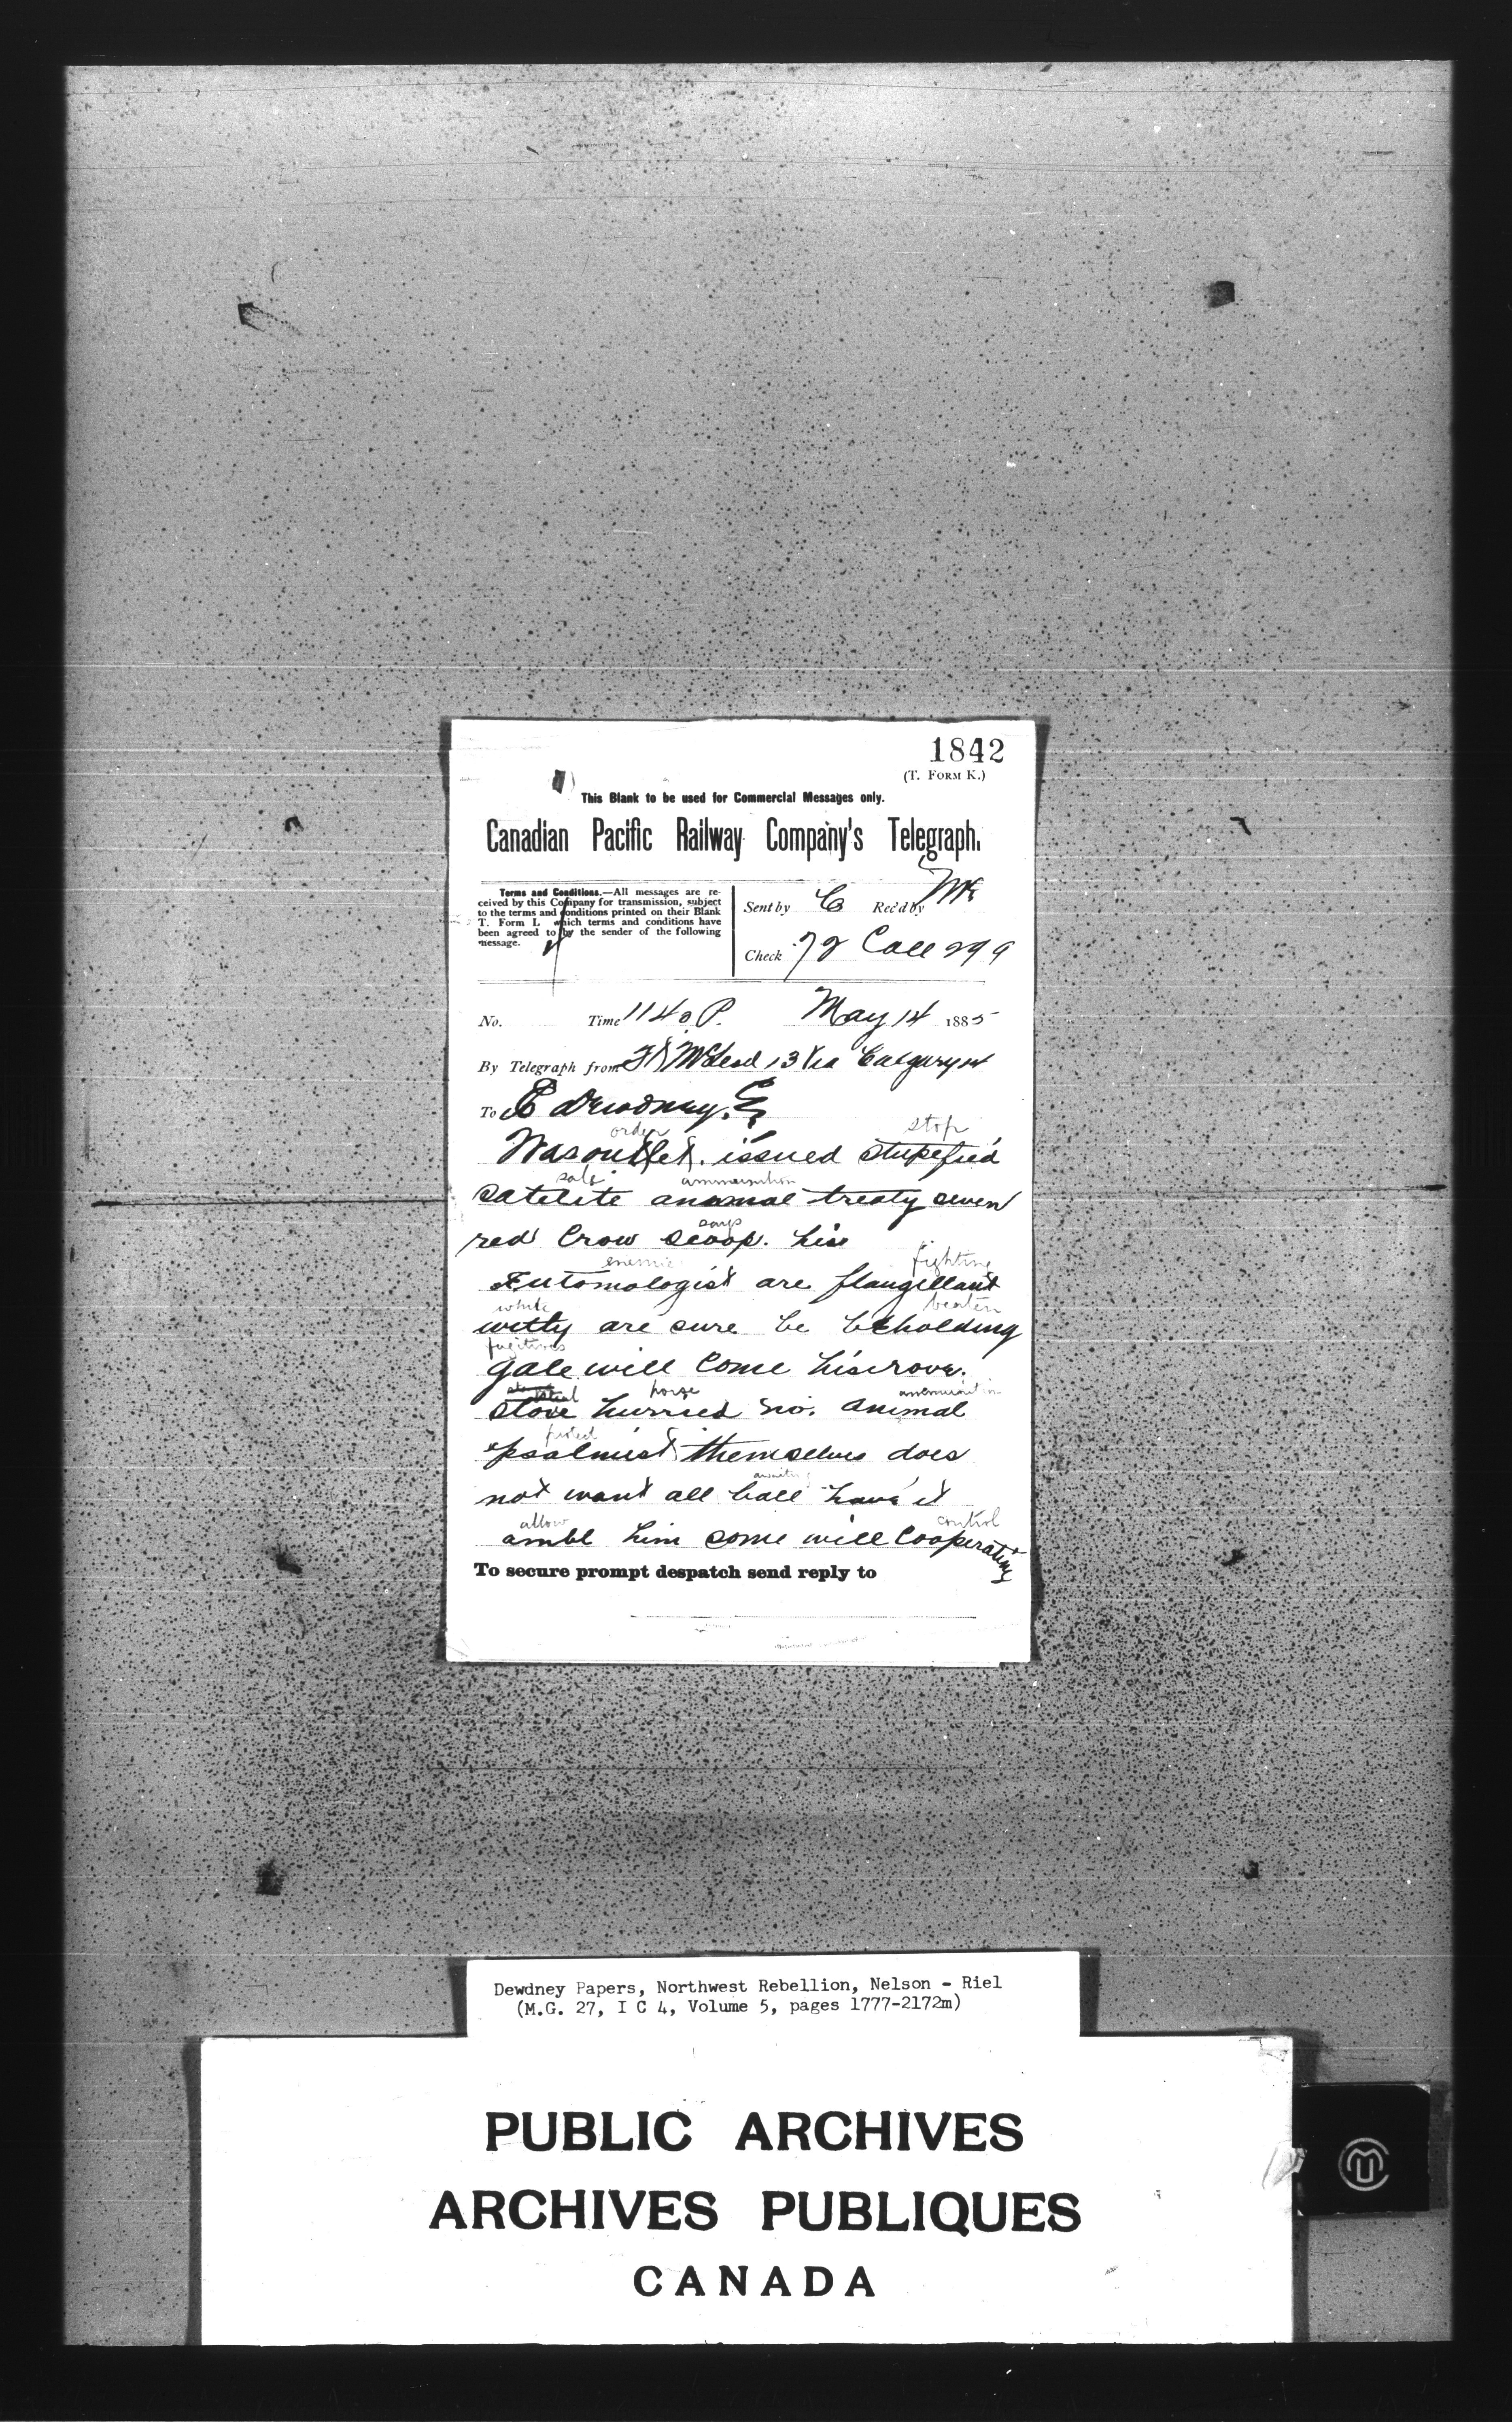 1842
(T. FORM K.)
This Blank to be used for Commercial Messages only.
Canadian Pacific Railway Company's Telegraph.
Terms and Conditions.—All messages are re-
ceived by this Company for transmission, subject
to the terms and conditions printed on their Blank
T. Form I. which terms and conditions have
been agreed to by the sender of the following
message.
Sent by C Rec'd by Mc
Check 72 Coll 299
No. Time 1140 P. May 14 1885
By Telegraph from Ft McLeod 13 Via Calgary 14
To E Dewdney.
order stop
Was outlet. issued stupefied
sale ammunition
satelite animal treaty seven
says
red Crow scoop. his
enemies fighting
Entomologist are flaugellant
white beaten
witty are sure be beholding
fugitives
gale will come his rova.
steal horse ammunition
stove hurried no. animal
protect
psalmist themselves does
not want all ball have it
allow control
ambl him some will cooperating
To secure prompt despatch send reply to
Dewdney Papers, Northwest Rebellion, Nelson - Riel
(M.G. 27, I C 4, Volume 5, pages 1777-2172m)
PUBLIC ARCHIVES
ARCHIVES PUBLIQUES
CANADA